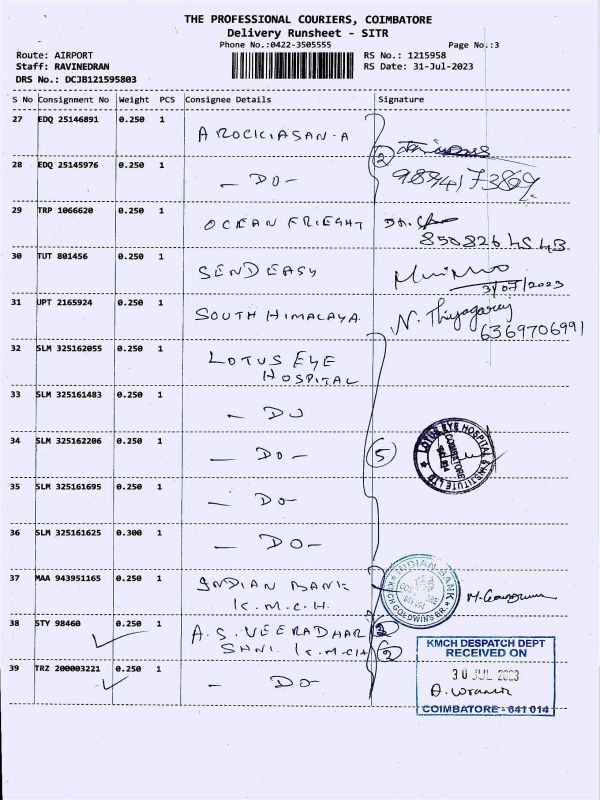 THE PROFESSIONAL COURIERS, COIMBATORE
Delivery Runsheet - SITR
Phone No.:0422-3505555 Page No.:3
Route: AIRPORT RS No.: 1215958
Staff: RAVINEDRAN RS Date: 31-Jul-2023
DRS No.: DCJB121595803
S No Consignment No Weight PCS Consignee Details Signature
27 EDQ 25146891 0.250 1 AROCKIASAN.A
28 EDQ 25145976 0.250 1 - DO - 2
29 TRP 1066620 0.250 1 OCEAN FRIEGHT
30 TUT 801456 0.250 1 SENDEASY
31/07/2023
31 UPT 2165924 0.250 1 SOUTH HIMALAYA N. Thiyagaraj
6369706991
32 SLM 325162055 0.250 1 LOTUS EYE
HOSPITAL
33 SLM 325161483 0.250 1 - DO
34 SLM 325162206 0.250 1 - DO - 5 LOTUS EYE HOSPITAL & INSTITUTE LTD
COIMBATORE
35 SLM 325161695 0.250 1 - DO -
36 SLM 325161625 0.300 1 - DO -
37 MAA 943951165 0.250 1 INDIAN BANK INDIAN BANK
K.M.C.H.
38 STY 98460 0.250 1 A.S. VEERADHAR 2
SHNI K.M.CH 2
KMCH DESPATCH DEPT
RECEIVED ON
39 TRZ 200003221 0.250 1 - DO 30 JUL 2023
COIMBATORE - 641 014